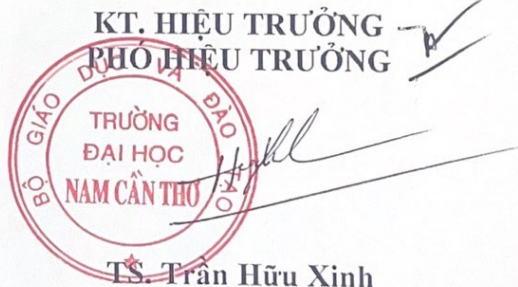 KT. HIỆU TRƯỞNG
PHÓ HIỆU TRƯỞNG
BỘ GIÁO DỤC VÀ ĐÀO TẠO
TRƯỜNG
ĐẠI HỌC
NAM CẦN THƠ
TS. Trần Hữu Xinh